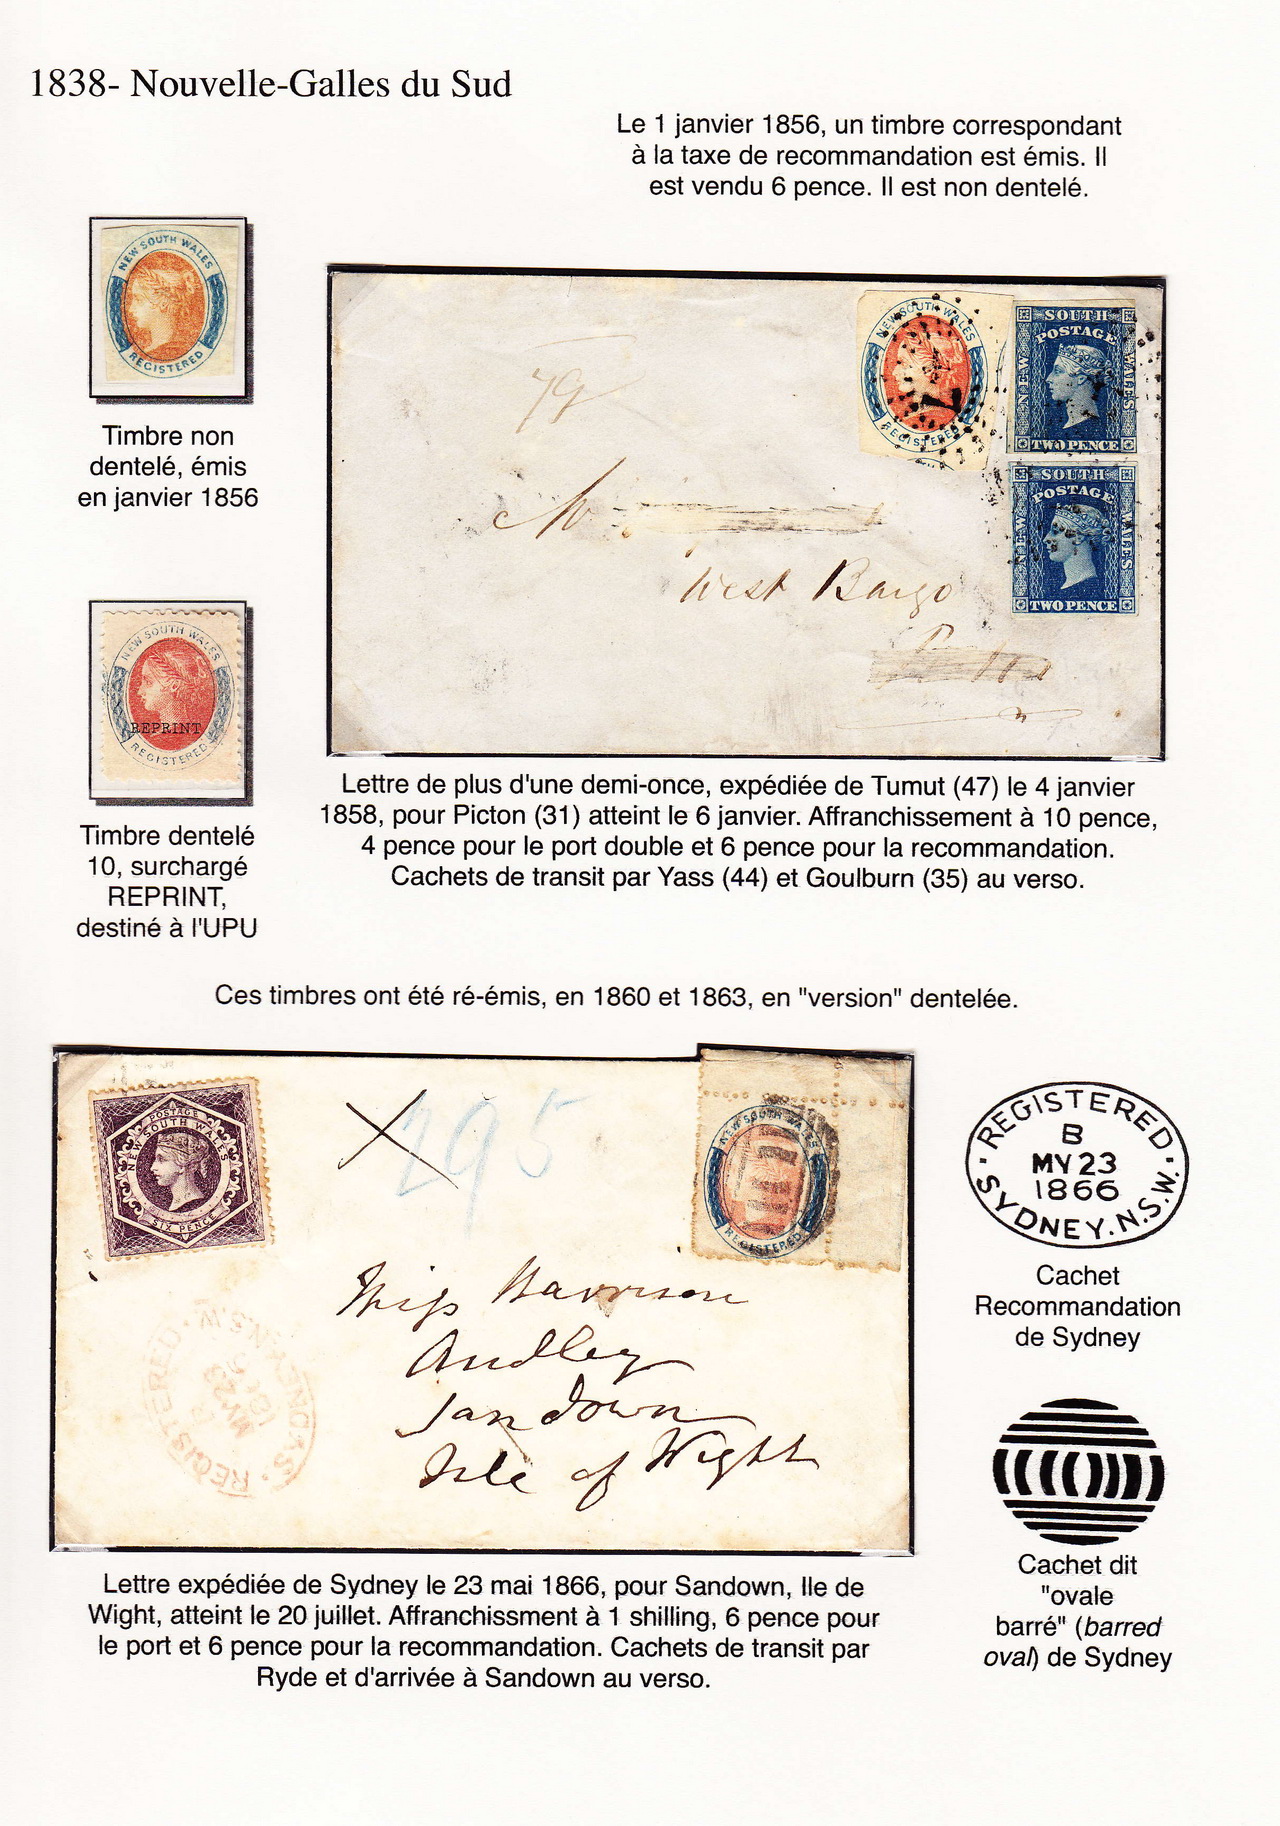 1838- Nouvelle-Galles du Sud
Le 1 janvier 1856, un timbre correspondant
à la taxe de recommandation est émis. Il
est vendu 6 pence. Il est non dentelé.
NEW SOUTH WALES
REGISTERED
Timbre non
dentelé, émis
en janvier 1856
NEW SOUTH WALES
REGISTERED
SOUTH
POSTAGE
NEW
WALES
TWO PENCE
SOUTH
POSTAGE
NEW
WALES
TWO PENCE
79
West Bargo
NEW SOUTH WALES
REPRINT
REGISTERED
Timbre dentelé
10, surchargé
REPRINT,
destiné à l'UPU
Lettre de plus d'une demi-once, expédiée de Tumut (47) le 4 janvier
1858, pour Picton (31) atteint le 6 janvier. Affranchissement à 10 pence,
4 pence pour le port double et 6 pence pour la recommandation.
Cachets de transit par Yass (44) et Goulburn (35) au verso.
Ces timbres ont été ré-émis, en 1860 et 1863, en "version" dentelée.
POSTAGE
NEW SOUTH WALES
SIX PENCE
295
NEW SOUTH WALES
REGISTERED
Miss Harrison
Audley
Sandown
Isle of Wight
REGISTERED
MY 23
SYDNEY.N.S.W.
REGISTERED
B
MY 23
1866
SYDNEY.N.S.W.
Cachet
Recommandation
de Sydney
Cachet dit
"ovale
barré" (barred
oval) de Sydney
Lettre expédiée de Sydney le 23 mai 1866, pour Sandown, Ile de
Wight, atteint le 20 juillet. Affranchissment à 1 shilling, 6 pence pour
le port et 6 pence pour la recommandation. Cachets de transit par
Ryde et d'arrivée à Sandown au verso.